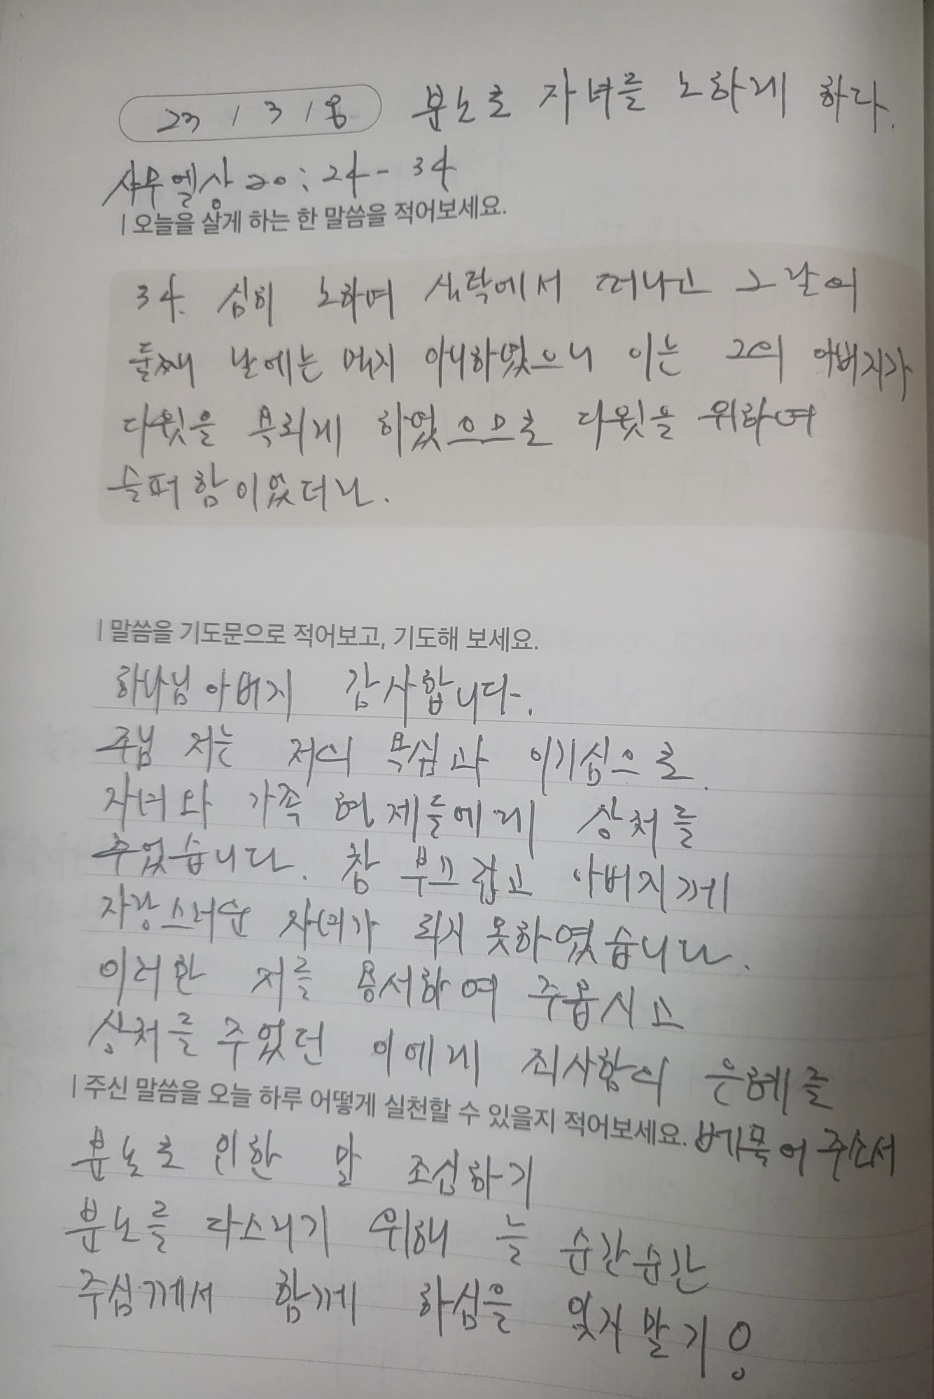 23 / 3 / 8 분노로 자녀를 노하게 하다.
사무엘상 20 : 24 - 34
| 오늘을 살게 하는 한 말씀을 적어보세요.
34. 심히 노하여 식탁에서 떠나고 그 달의
둘째 날에는 먹지 아니하였으니 이는 그의 아버지가
다윗을 욕되게 하였으므로 다윗을 위하여
슬퍼함이었더라.
| 말씀을 기도문으로 적어보고, 기도해 보세요.
하나님 아버지 감사합니다.
주님 저는 저의 욕심과 이기심으로
자녀와 가족 형제들에게 상처를
주었습니다. 참 부끄럽고 아버지께
자랑스러운 자녀가 되지 못하였습니다.
이러한 저를 용서하여 주옵시고
상처를 주었던 이에게 죄사함의 은혜를
베풀어 주소서
| 주신 말씀을 오늘 하루 어떻게 실천할 수 있을지 적어보세요.
분노로 인한 말 조심하기
분노를 다스리기 위해 늘 순간순간
주님께서 함께 하심을 잊지 말기!